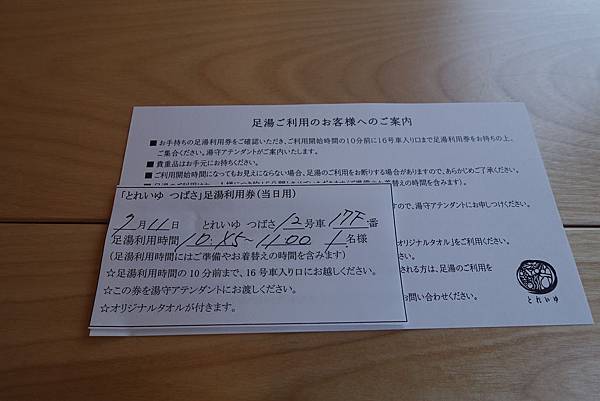 足湯ご利用のお客様へのご案内
■お手持ちの足湯利用券をご確認いただき、ご利用開始時間の10分前に16号車入り口まで足湯利用券をお持ちの上、
ご集合ください。湯守アテンダントがご案内いたします。
■貴重品はお手元にお持ちください。
■ご利用開始時間になってもお見えにならない場合、足湯のご利用をお断りする場合がありますので、あらかじめご了承ください。
着替えの時間を含みます)。
すので、湯守アテンダントにお申しつけください。
オリジナルタオル」をご利用ください。
される方は、足湯のご利用を
お問い合わせください。
とれいゆ
「とれいゆ つばさ」足湯利用券(当日用)
9月11日 とれいゆ つばさ12号車17F番
足湯利用時間10:45~11:00 1名様
(足湯利用時間にはご準備やお着替えの時間を含みます)
☆足湯利用時間の10分前まで、16号車入り口にお越しください。
☆この券を湯守アテンダントにお渡しください。
☆オリジナルタオルが付きます。